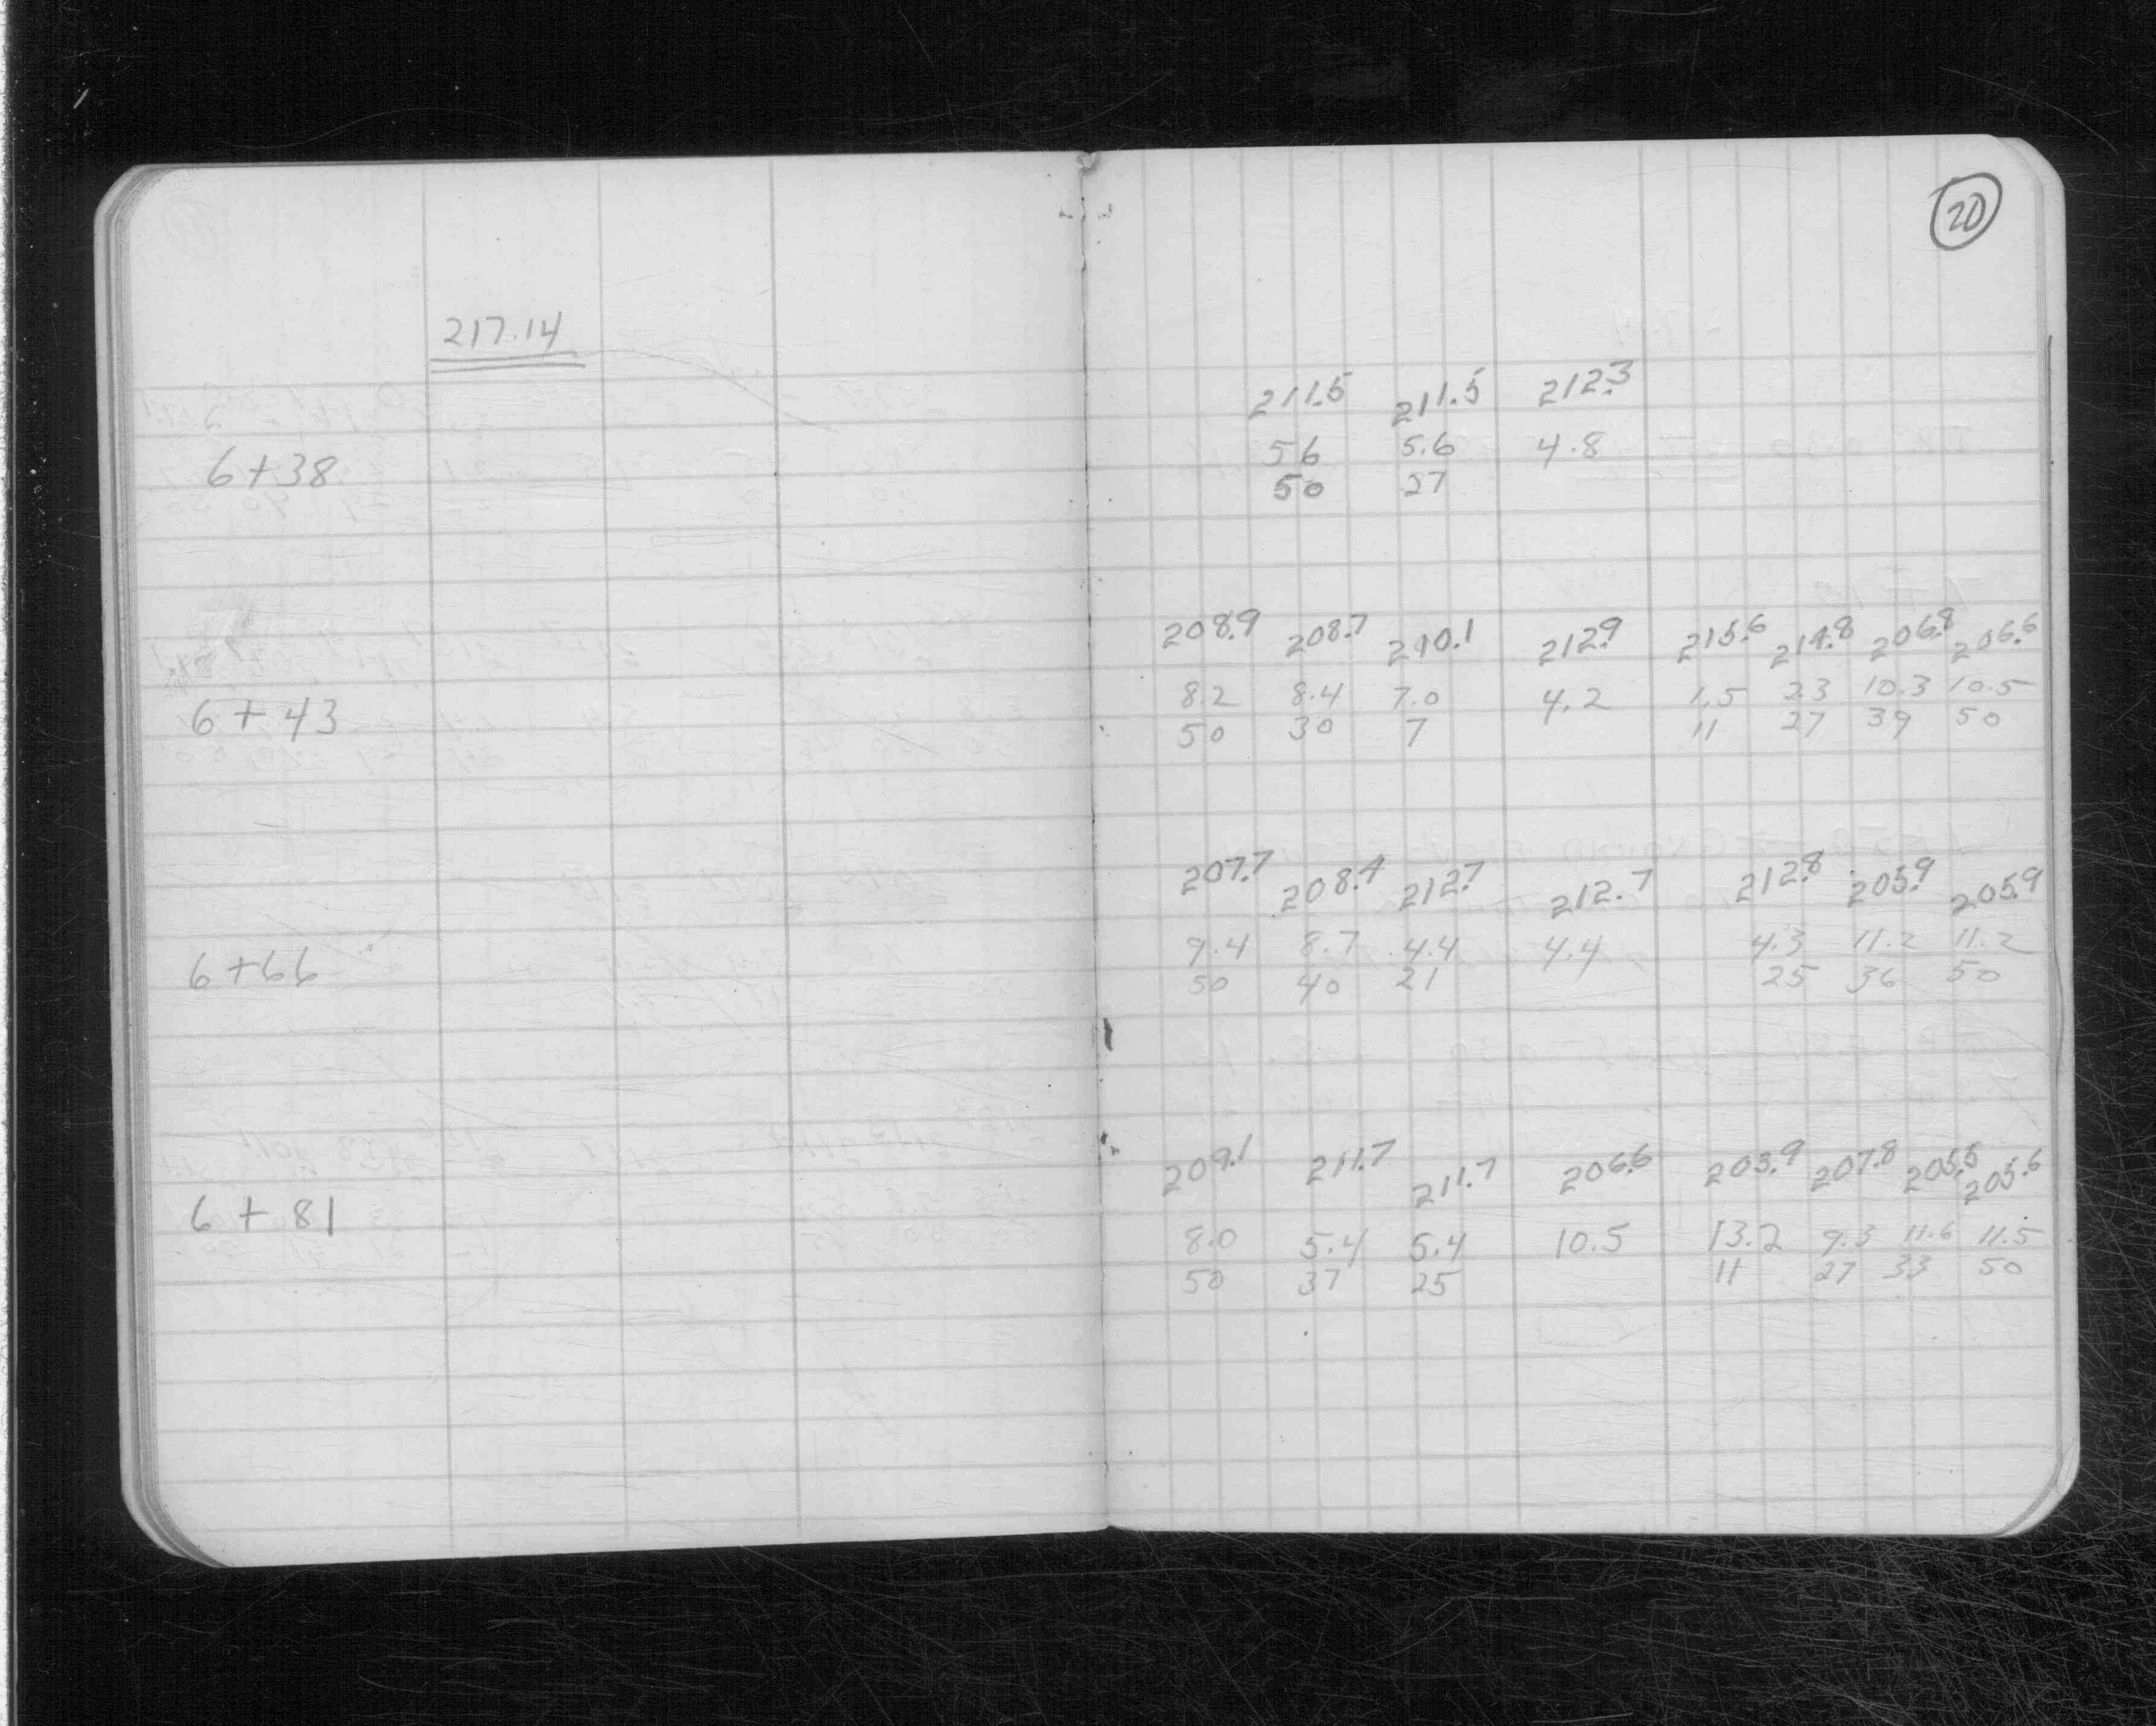 20
217.14
211.5 211.5 212.3
6+38 56 5.6 4.8
50 27
208.9 208.7 210.1 212.9 215.6 214.8 206.8 206.6
8.2 8.4 7.0 4.2 1.5 2.3 10.3 10.5
6+43 50 30 7 11 27 39 50
207.7 208.4 212.7 212.7 212.8 205.9 205.9
9.4 8.7 4.4 4.4 4.3 11.2 11.2
6+66 50 40 21 25 36 50
209.1 211.7 211.7 206.6 203.9 207.8 205.5 205.6
6+81 8.0 5.4 5.4 10.5 13.2 9.3 11.6 11.5
50 37 25 11 27 33 50